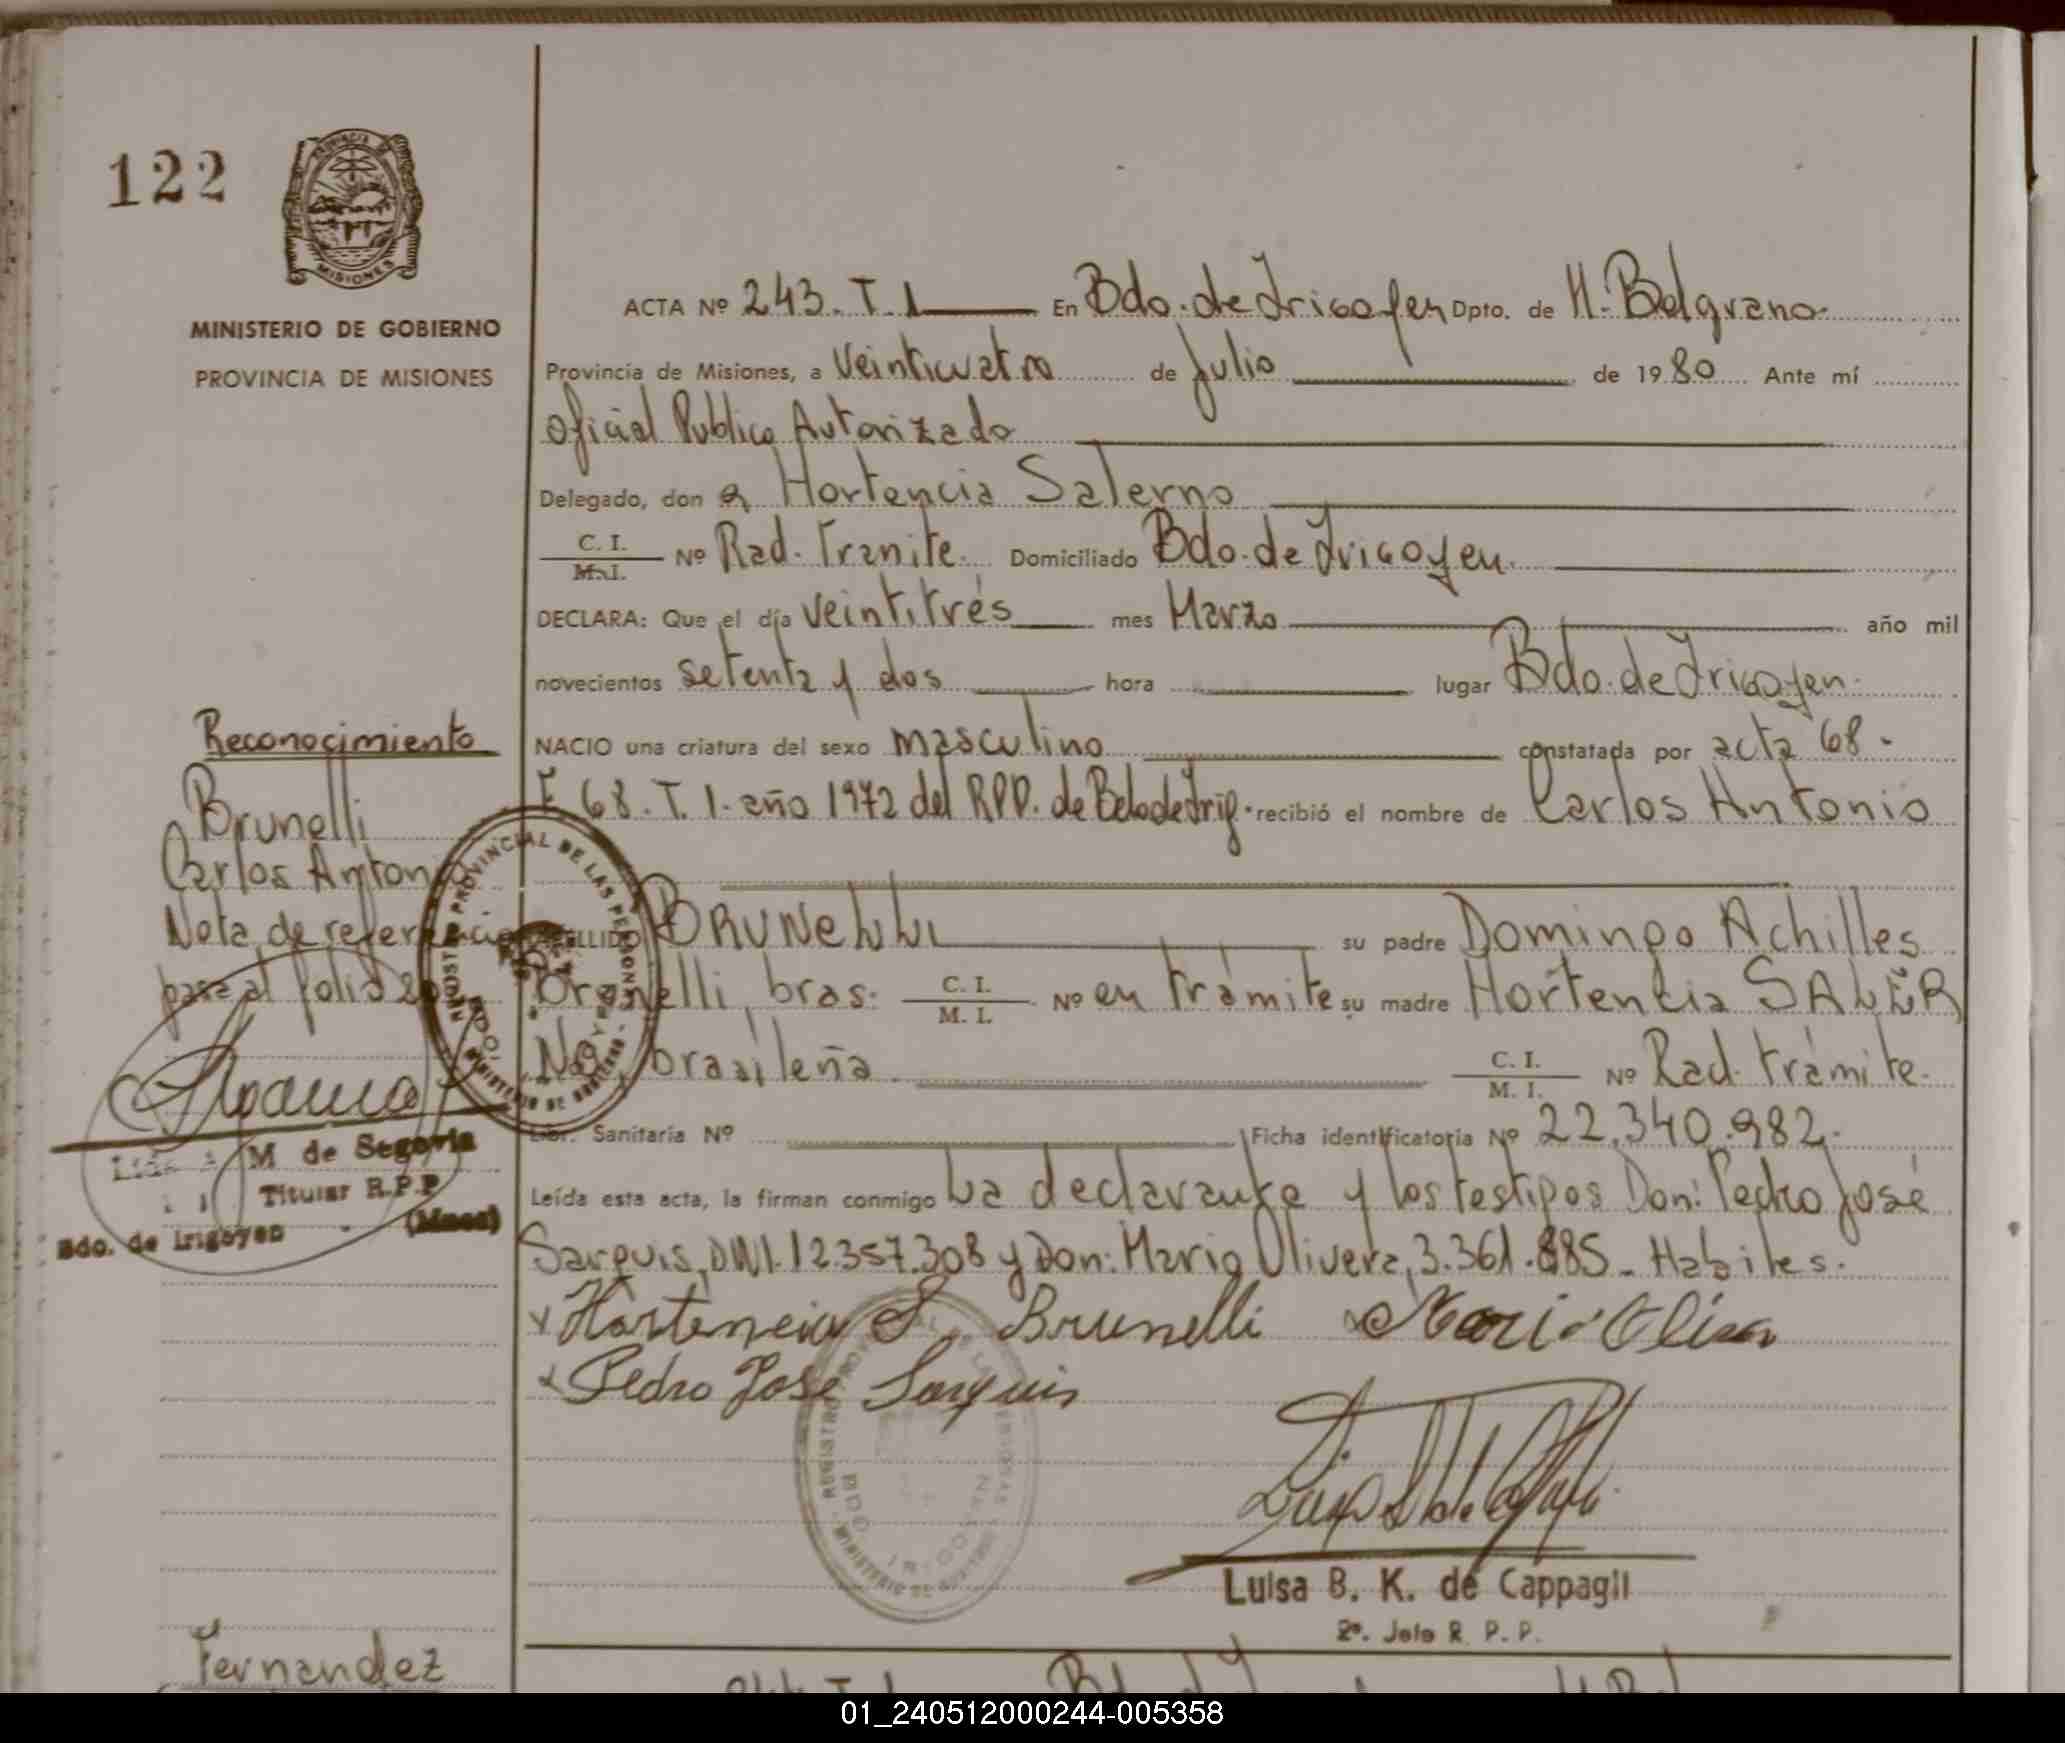 122
PROVINCIA DE
MISIONES
MINISTERIO DE GOBIERNO
PROVINCIA DE MISIONES
ACTA Nº 243. T. 1 En Bdo. de Irigoyen Dpto. de M. Belgrano
Provincia de Misiones, a Veinticuatro de Julio de 1980 Ante mí
Oficial Publico Autorizado
Delegado, don a Hortencia Salerno
C. I. M. I. Nº Rad. Tramite. Domiciliado Bdo. de Irigoyen.
DECLARA: Que el día veintitrés mes Marzo año mil
novecientos setenta y dos hora lugar Bdo. de Irigoyen.
NACIO una criatura del sexo masculino constatada por acta 68.
F 68. T. 1. año 1972 del RPP. de Bdo de Irig. recibió el nombre de Carlos Antonio
APELLIDO BRUNELLI su padre Domingo Achilles
Brunelli, bras. C. I. M. I. Nº en trámite su madre Hortencia SALER
No, brasileña C. I. M. I. Nº Rad. trámite.
Libr. Sanitaria Nº Ficha identificatoria Nº 22.340.982.
Leída esta acta, la firman conmigo La declarante y los testigos Don: Pedro José
Sarquis, DNI. 12.357.308 y Don: Mario Olivera, 3.361.885. Habiles.
x Hortencia S. Brunelli Mario Olivera
x Pedro José Sarquis
Luisa B. K. de Cappagli
2º. Jefe R. P. P.
Reconocimiento
Brunelli
Carlos Antonio
Nota de referencia
pasa al folio
M de Segovia
Titular R.P.P
Bdo. de Irigoyen (Mnes)
REGISTRO PROVINCIAL DE LAS PERSONAS
MINISTERIO DE GOBIERNO
BDO. IRIGOYEN
REGISTRO PROVINCIAL DE LAS PERSONAS
MINISTERIO DE GOBIERNO
BDO. IRIGOYEN
Fernandez
01_240512000244-005358